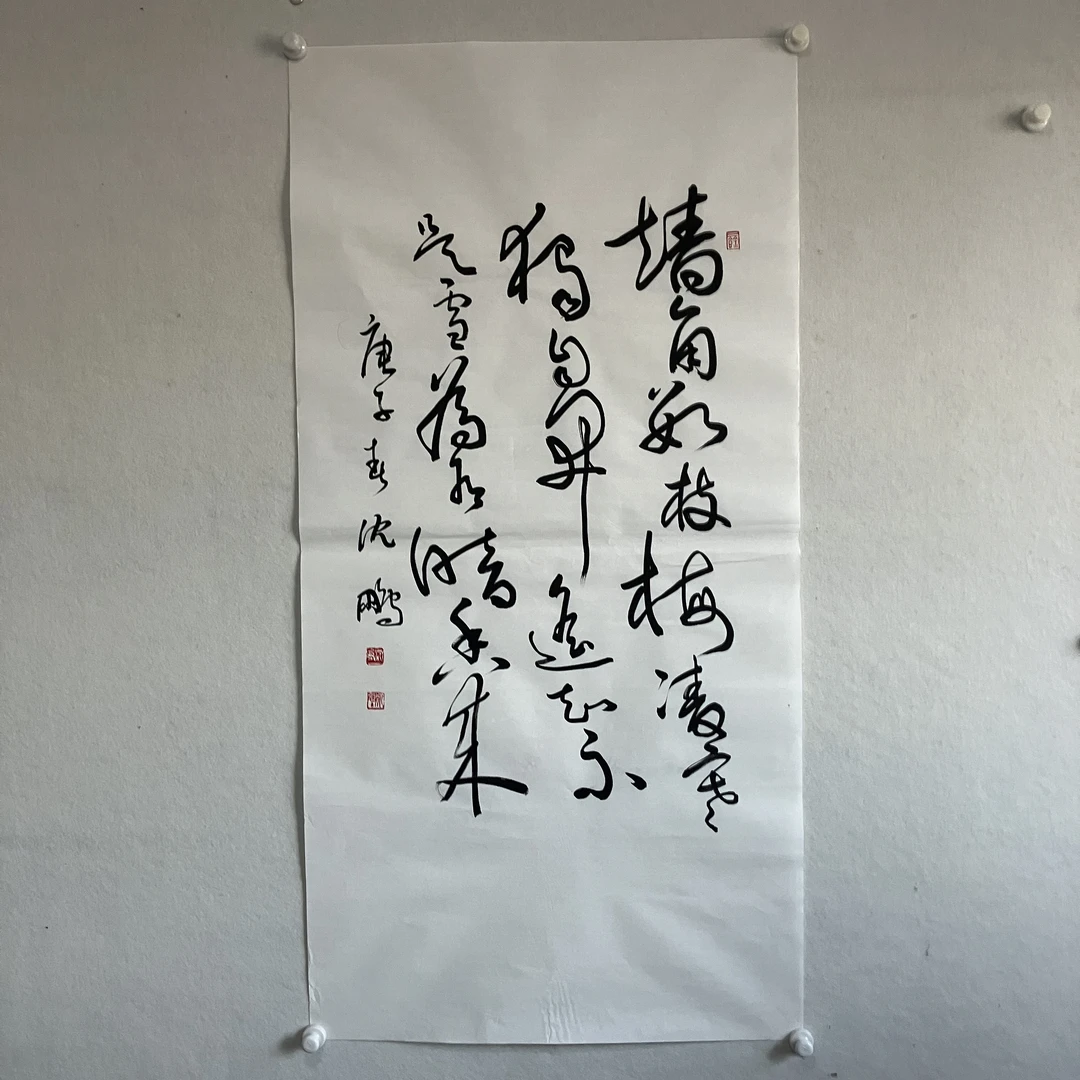 墙角数枝梅凌寒
獨自開遥知不
是雪為有暗香来
庚子春沈鹏